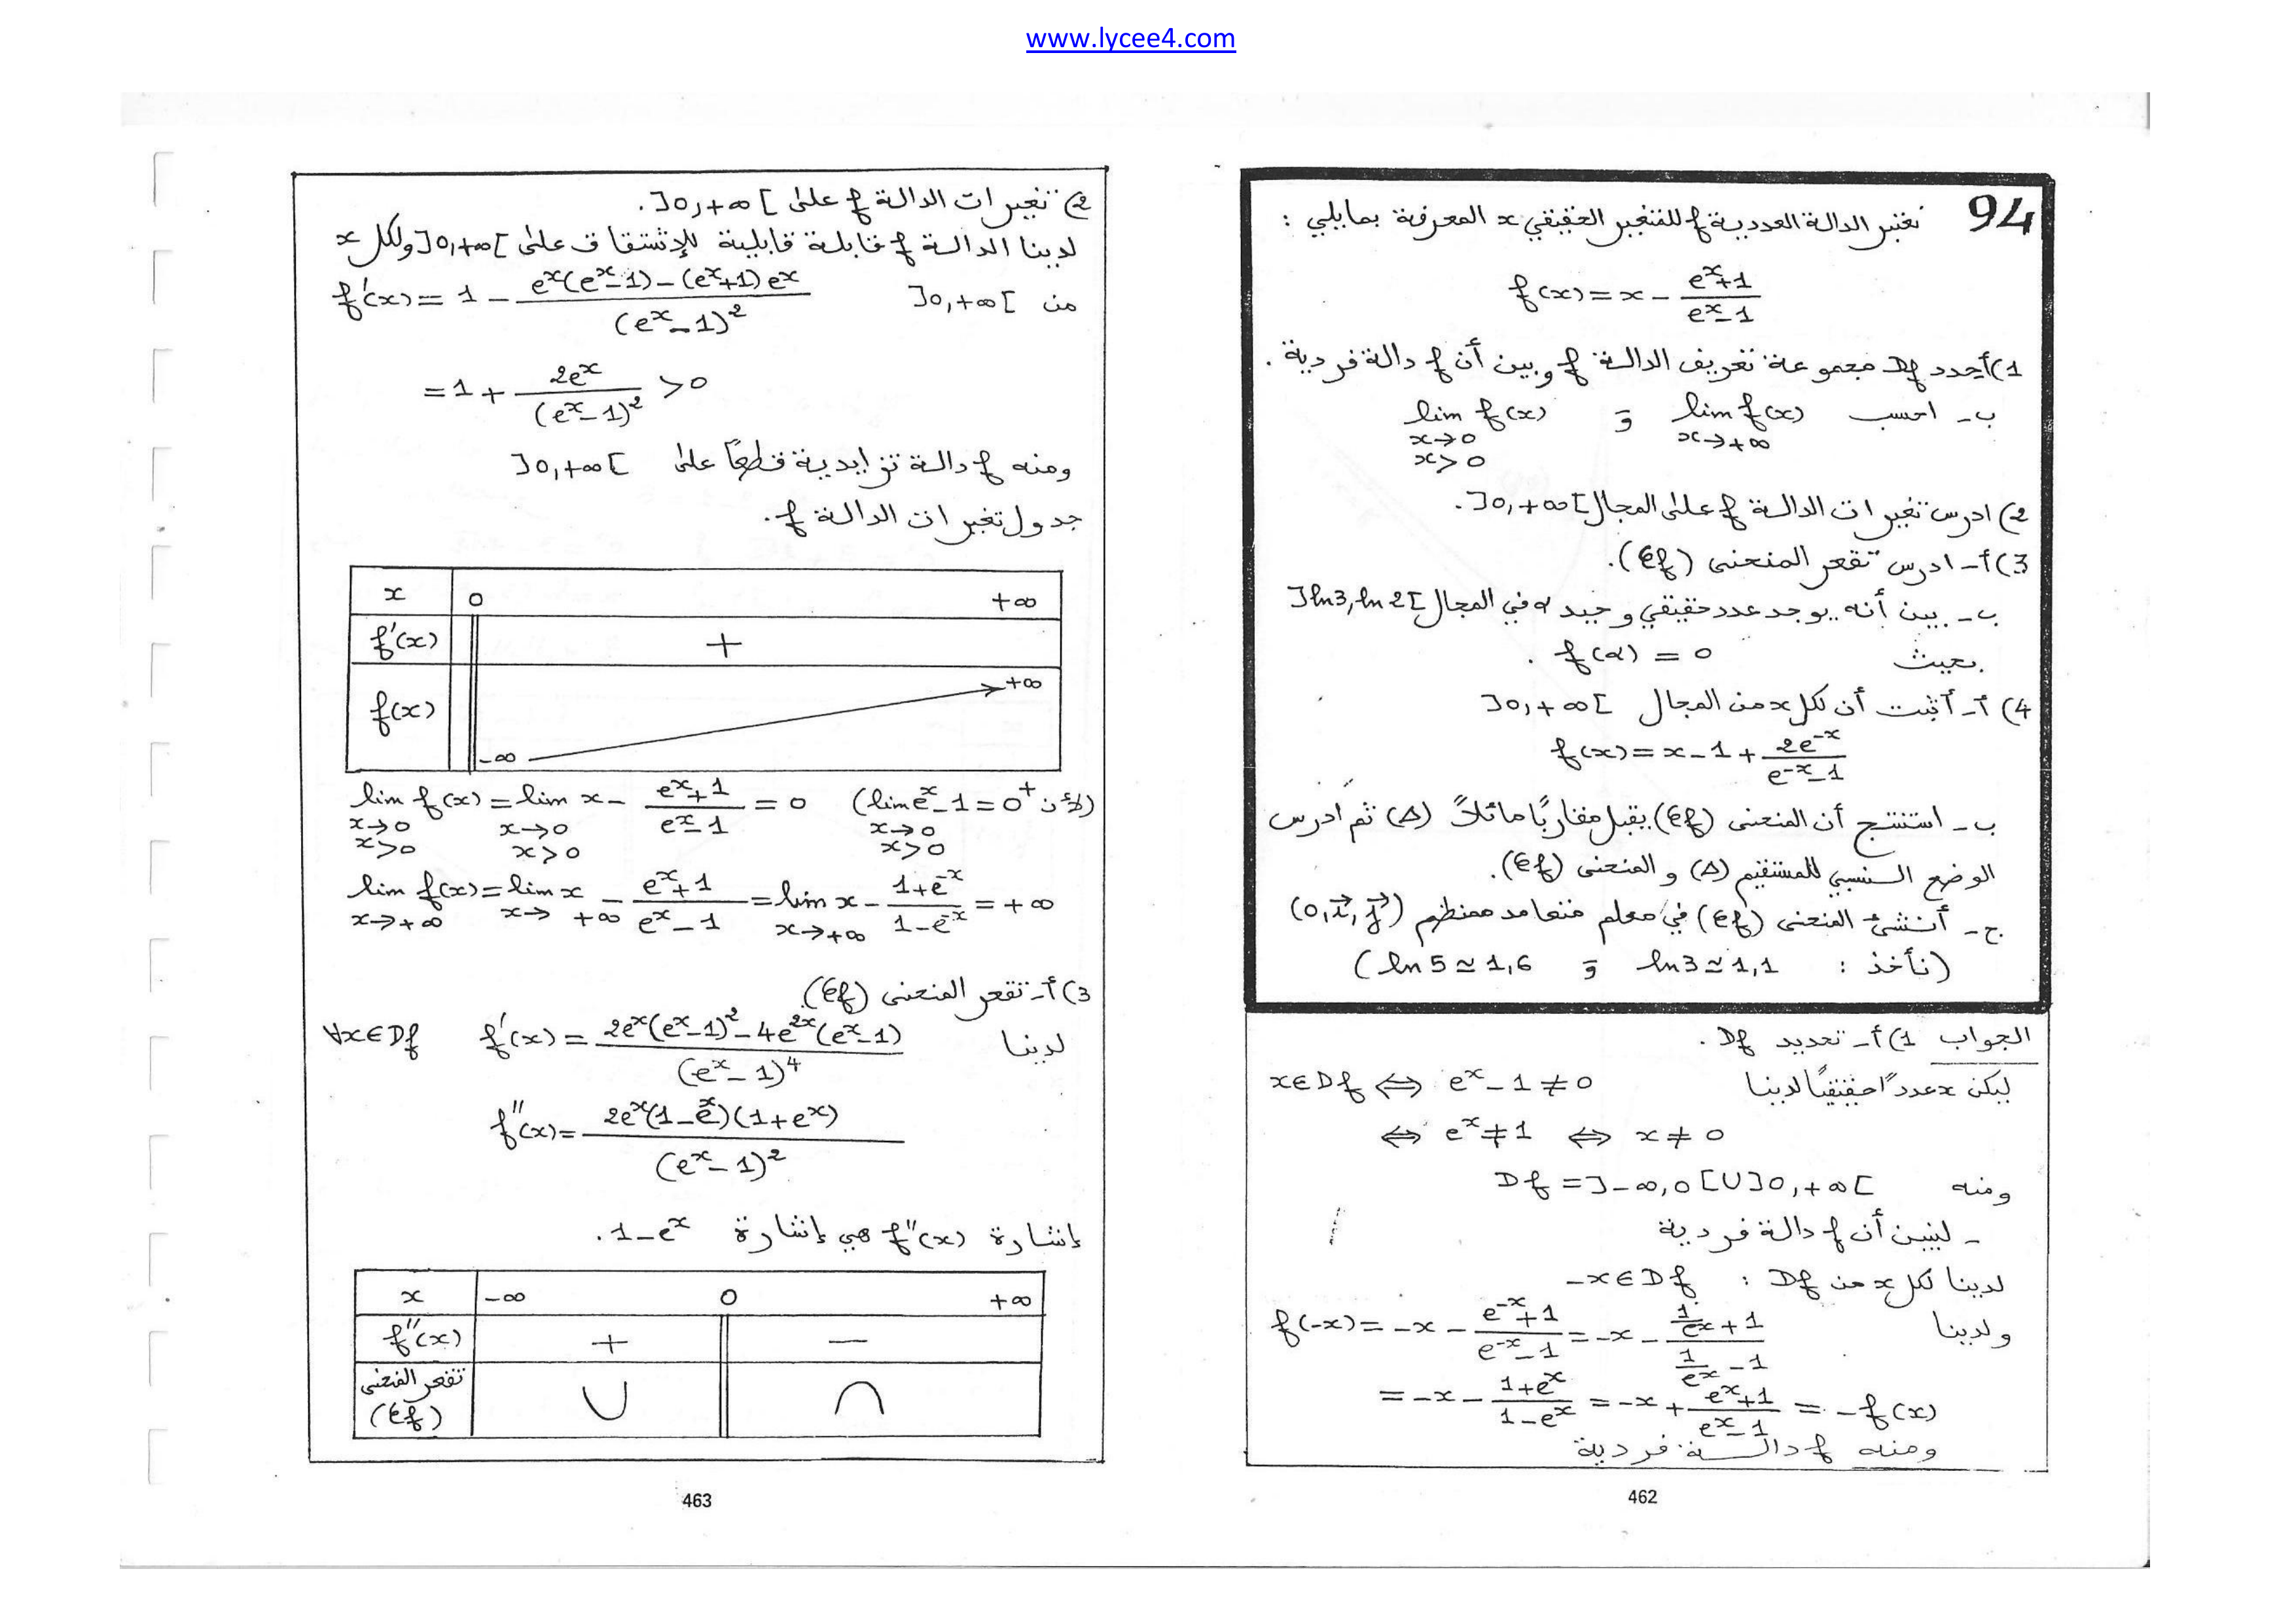 www.lycee4.com
94 نعتبر الدالة العددية f للمتغير الحقيقي x المعرفة بمايلي :
f(x) = x - \frac{e^x+1}{e^x-1}
1) أ- حدد Df مجموعة تعريف الدالة f وبين أن f دالة فردية .
ب- احسب \lim_{x→+∞} f(x) و \lim_{x→0, x>0} f(x)
2) ادرس تغيرات الدالة f على المجال ]0,+∞[.
3) أ- ادرس تقعر المنحنى (Cf).
ب- بين أنه يوجد عدد حقيقي وحيد α في المجال ]ln3, ln2[
بحيث f(α) = 0 .
4) أ- أثبت أن لكل x من المجال ]0,+∞[
f(x) = x - 1 + \frac{2e^{-x}}{e^{-x}-1}
ب- استنتج أن المنحنى (Cf) يقبل مقاربًا مائلاً (Δ) ثم ادرس
الوضع النسبي للمستقيم (Δ) و المنحنى (Cf).
ج- أنشئ المنحنى (Cf) في معلم متعامد ممنظم (0,\vec{i},\vec{j})
(نأخذ : ln3 ≃ 1,1 و ln5 ≃ 1,6)
الجواب 1) أ- تحديد Df .
ليكن x عددًا حقيقيًا لدينا x∈Df ⇔ e^x - 1 ≠ 0
⇔ e^x ≠ 1 ⇔ x ≠ 0
ومنه Df = ]-∞,0[∪]0,+∞[
- لنبين أن f دالة فردية
لدينا لكل x من Df : -x∈Df
ولدينا f(-x) = -x - \frac{e^{-x}+1}{e^{-x}-1} = -x - \frac{\frac{1}{e^x}+1}{\frac{1}{e^x}-1}
= -x - \frac{1+e^x}{1-e^x} = -x + \frac{e^x+1}{e^x-1} = -f(x)
ومنه f دالة فردية
462
2) تغيرات الدالة f على ]0,+∞[ .
لدينا الدالة f قابلة قابلية للإشتقاق على ]0,+∞[ ولكل x
من ]0,+∞[ f'(x) = 1 - \frac{e^x(e^x-1)-(e^x+1)e^x}{(e^x-1)^2}
= 1 + \frac{2e^x}{(e^x-1)^2} > 0
ومنه f دالة تزايدية قطعًا على ]0,+∞[
جدول تغيرات الدالة f.
x 0 +∞
f'(x) +
f(x) -∞ +∞
\lim_{x→0, x>0} f(x) = \lim_{x→0, x>0} x - \frac{e^x+1}{e^x-1} = 0 (لأن \lim_{x→0, x>0} e^x - 1 = 0^+)
\lim_{x→+∞} f(x) = \lim_{x→+∞} x - \frac{e^x+1}{e^x-1} = \lim_{x→+∞} x - \frac{1+e^{-x}}{1-e^{-x}} = +∞
3) أ- تقعر المنحنى (Cf).
لدينا f'(x) = \frac{2e^x(e^x-1)^2-4e^{2x}(e^x-1)}{(e^x-1)^4} ∀x∈Df
f''(x) = \frac{2e^x(1-e^x)(1+e^x)}{(e^x-1)^2}
إشارة f''(x) هي إشارة 1-e^x .
x -∞ 0 +∞
f''(x) + -
تقعر المنحنى
(Cf) ∪ ∩
463